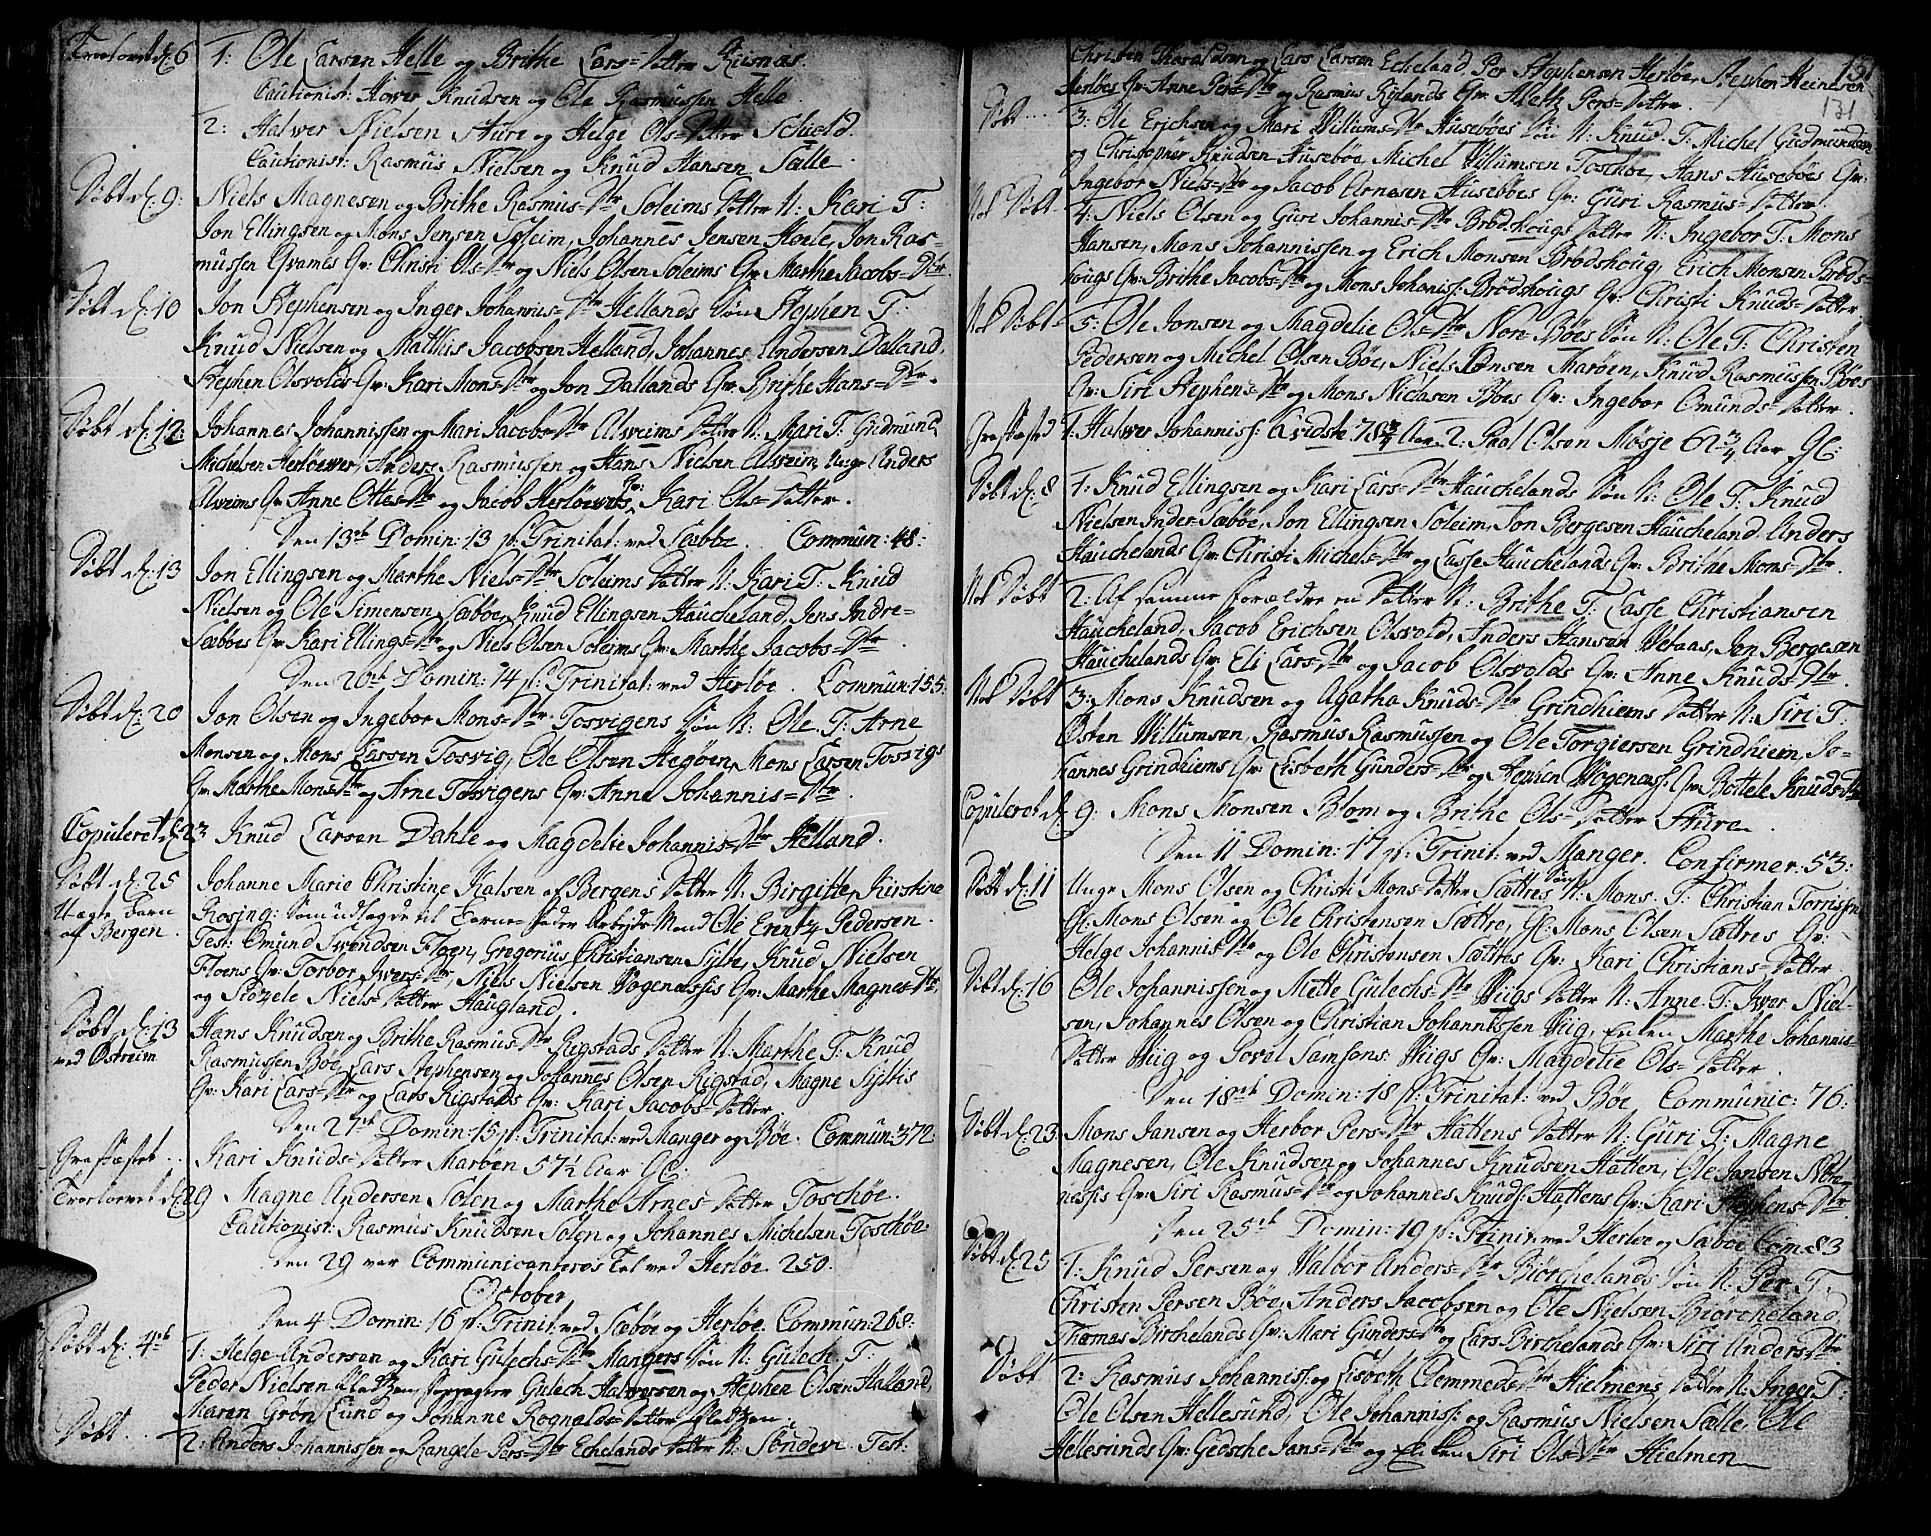 Troelovet d. 6 1: Ole Larsen Helle og Brithe Lars-Datter Risnæs.
Cautionist: Hower Knudsen og Ole Rasmussen Helle.
2: Halwer Nielsen Sture og Helge Ols-Datter Schiold.
Cautionist: Rasmus Nielsen og Knud Hansen Sælle.
Døbt d. 9: Niels Magnesen og Brithe Rasmus-Dtr Soleims Datter N: Kari T:
Jon Ellingsen og Mons Jensen Soleim, Johannes Jensen Hoele, Jon Ras-
mussen Qvames Qv: Christi Ols-Dtr og Niels Olsen Soleims Qv: Marthe Jacobs-Dtr.
Døbt d. 10 Jon Stephensen og Inger Johannis-Dtr Hellands Søn Stephen T:
Knud Nielsen og Mathis Jacobsen Helland, Johannes Andersen Dalland,
Stephen Olsvolds Qv: Kari Mons-Dtr og Jon Dallands Qv: Brithe Hans-Dtr.
Døbt d. 12: Johannes Johannissen og Mari Jacobs-Dtr Alweims Datter N: Mari T: Gudmund
Michelsen Herløewer, Anders Rasmussen og Hans Nielsen Alweim, Unge Anders
Alweims Qv: Anne Ottes-Dtr og Jacob Herløewers Qv: Kari Ols-Datter.
Den 13de Domin: 13 p: Trinitat: ved Sæbøe. Commun: 48:
Døbt d. 13 Jon Ellingsen og Marthe Niels-Dtr Soleims Datter N: Kari T: Knud
Nielsen og Ole Simensen Sæbøe, Knud Ellingsen Haucheland, Jens Indre-
Sæbøes Qv: Kari Ellings-Dtr og Niels Olsen Soleims Qv: Marthe Jacobs-Dtr.
Den 20de Domin: 14 p: Trinitat: ved Herløe. Commun: 155:
Døbt d. 20 Jon Olsen og Ingebor Mons-Dtr Tosvigens Søn N: Ole. T: Arne
Monsen og Mons Lassen Tosvig, Ole Olsen Hegøen, Mons Larsen Tosvigs
Qv: Marthe Mons-Dtr og Arne Tosvigens Qv: Anne Johannis-Dtr.
Copuleret d. 23 Knud Larsen Dahle og Magdelie Johannis-Dtr Helland.
Døbt d. 25 Johanne Marie Christine Kalsen af Bergens Datter N: Birgitte Kirstine
Uægte Barn Rosing: Som udlagde til Barne-Fader Arbejds-Mand Ole Erentz Pedersen.
af Bergen. Test: Omund Swendsen Floen, Gregorius Christiansen Sylte, Knud Nielsen
Floens Qv: Torbor Iwers-Dtr, Niels Nielsen Vogenæssis Qv: Marthe Magnes-Dtr,
og Sidzele Niels-Datter Haugland.
Døbt d. 13 Hans Knudsen og Brithe Rasmus-Dtr Rigstads Datter N: Marthe T: Knud
ved Østreim Rasmussen Bøe, Lars Stephensen og Johannes Olsen Rigstad, Magne Syltis
Qv: Kari Lars-Dtr og Lars Rigstads Qv: Kari Jacobs-Datter
Den 27de Domin: 15 p: Trinitat: ved Manger og Bøe. Commun: 372:
Graffæstet.. Kari Knuds-Datter Marøen 57½ Aar Gl:
Troelovet d. 29 Magne Andersen Solen og Marthe Arnes-Datter Toschøe.
Cautionist: Rasmus Knudsen Solen og Johannes Michelsen Toschøe:
Den 29 var Communicanternes Tal ved Herløe 250.
October
Den 4 Domin: 16 p: Trinit: ved Sæbøe og Herløe. Commun: 268:
Døbt d. 4de 1: Helge Andersen og Kari Gulechs-Dtr Mangers Søn N: Gulech T:
Peder Nielsen Fladtzen, Gulech Halwersen og Stephen Olsen Halland,
Maren Grøn, Lund og Johanne Rognalds-Datter Fladtzen.
Døbt... 2: Anders Johannissen og Rangele Pers-Dtr Echelands Datter N: Søndevi. Test:
131
131
Christen Tharaldsen og Lars Larsen Echeland, Per Stephensen Herløe, Stephen Heinesen
Herløes Qv: Anne Pers-Dtr og Rasmus Rylands Qv: Aleth Pers-Datter.
Døbt.... 3: Ole Erichsen og Mari Willums-Dtr Husebøes Søn N: Knud. T: Michel Gudmundsen
og Christopher Knudsen Husebøe, Michel Willumsen Toschøe, Hans Husebøes Qv:
Ingebor Niels-Dtr og Jacob Arnesen Husebøes Qv: Guri Rasmus-Datter.
Nok Døbt 4: Niels Olsen og Guri Johannis-Dtr Brodshougs Datter N: Ingebor T: Mons
Hansen, Mons Johannissen og Erich Monsen Brodshoug, Erich Monsen Brods-
hougs Qv: Brithe Jacobs-Dtr og Mons Johannis: Brodshougs Qv: Christi Knuds-Datter.
Nok Døbt 5: Ole Jonsen og Magdelie Ols-Dtr Non-Bøes Søn N: Ole T: Christen
Pedersen og Michel Olsen Bøe, Niels Jonsen Marøen, Knud Rasmussen Bøes
Qv: Siri Stephens-Dtr og Mons Niclasen Bøes Qv: Ingebor Omunds-Datter.
Graffæsted 1: Halwer Johannis: Qvidste 78¾ Aar 2: Paal Olsen Møsje 62¾ Aar Gl:
Døbt d. 8 1: Knud Ellingsen og Kari Lars-Dtr Hauchelands Søn N: Ole T: Knud
Nielsen Inder-Sæbøe, Jon Ellingsen Soleim, Jon Bergesen Haucheland Anders
Hauchelands Qv: Christi Michels-Dtr og Lasse Hauchelands Qv: Brithe Mons-Dtr.
Nok Døbt 2: Af samme Forældre en Datter N: Brithe T: Lasse Christiansen
Haucheland, Jacob Erichsen Olsvold, Anders Hansen Wetaas, Jon Bergesen
Hauchelands Qv: Eli Lars-Dtr og Jacob Olsvolds Qv: Anne Knuds-Dtr.
Nok Døbt 3: Mons Knudsen og Agatha Knuds-Dtr Grindheims Datter N: Siri T:
Østen Willumsen, Rasmus Rasmussen og Ole Torgiersen Grindheim, Jo-
hannes Grindheims Qv: Lisbeth Gunders-Dtr og Stephen Vogenæs: Qv: Bottele Knuds-Dtr
Copuleret d. 9: Mons Monsen Blom og Brithe Ols-Datter Sture.
Den 11 Domin: 17 p: Trinit: ved Manger. Confirmer: 53:
Døbt d. 11 Unge Mons Olsen og Christi Mons-Datter Sættres Søn N: Mons. T: Christian Torrissen
Gl: Mons Olsen og Ole Christensen Sættre, Gl: Mons Olsen Sættres Qv:
Helge Johannis-Dtr og Ole Christensen Sættres Qv: Kari Christians-Datter.
Døbt d. 16 Ole Johannissen og Mette Gulechs-Dtr Wiigs Datter N: Anne T: Iwer Niel-
sen, Johannes Olsen og Christian Johannissen Wiig, Enken Marthe Johannis-
Datter Wiig og Povel Samsons: Wiigs Qv: Magdelie Ols-Datter.
Den 18de Domin: 18 p: Trinitat: ved Bøe Communic: 76:
Døbt d. 23 Mons Jansen og Herbor Pers-Dtr Hattens Datter N: Guri T: Magne
Magnesen, Ole Knudsen og Johannes Knudsen Hatten, Ole Jansen Nøte-
næssis Qv: Siri Rasmus-Dtr og Johannes Knuds: Hattens Qv: Kari Stephens-Dtr.
Den 25de Domin: 19 p: Trinit: ved Herløe og Sæbøe Com: 83
Døbt d. 25 1: Knud Persen og Walbor Anders-Dtr Biørchelands Søn N: Per T:
Christen Persen Bøe, Anders Jacobsen og Ole Nielsen Biorcheland,
Thomas Birchelands Qv: Mari Gunders-Dtr og Lars Birchelands Qv: Siri Anders-Dtr.
Døbt 2: Rasmus Johannis: og Lisbeth Clemmeds-Dtr Hielmens Datter N: Inger T:
Ole Olsen Hellesund, Ole Johannis: og Rasmus Nielsen Sælle, Ole
Hellesunds Qv: Gedsche Jans-Dtr og Enken Siri Ols-Dtr Hielmen